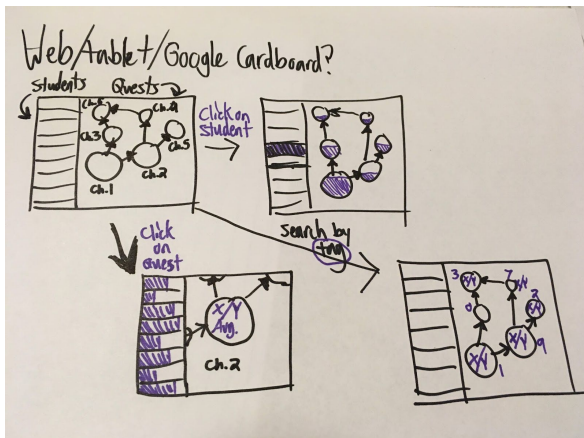 Web/tablet/Google Cardboard?
Students Quests
Ch.4
Ch.3
Ch.5
Ch.1
Ch.2
Click on
student
Click
on
Quest
X/Y
Avg.
Ch.2
Search by
tag
3
X/Y
7
X/Y
2
X/Y
X/Y
1
X/Y
9